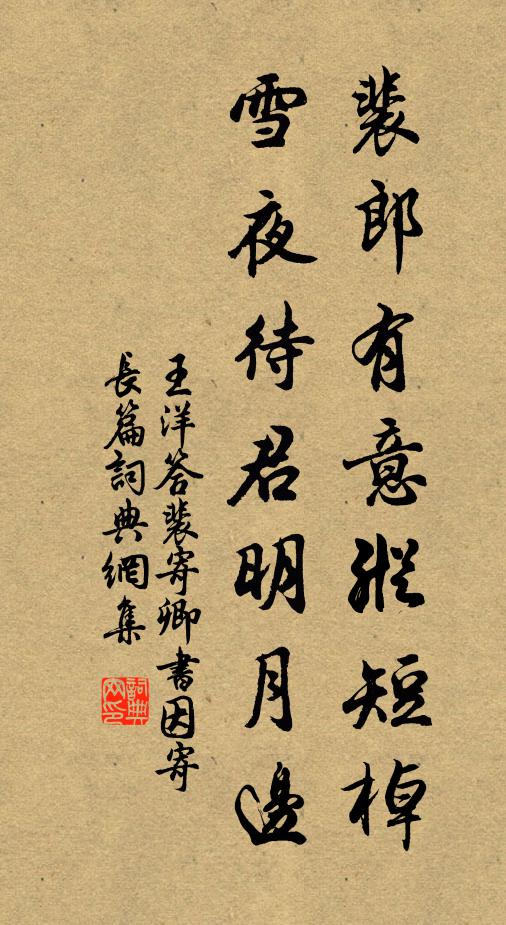 裴郎有意縱短棹
雪夜待君明月邊
王洋答裴寄卿書因寄
長篇詞典網集
詞典網印